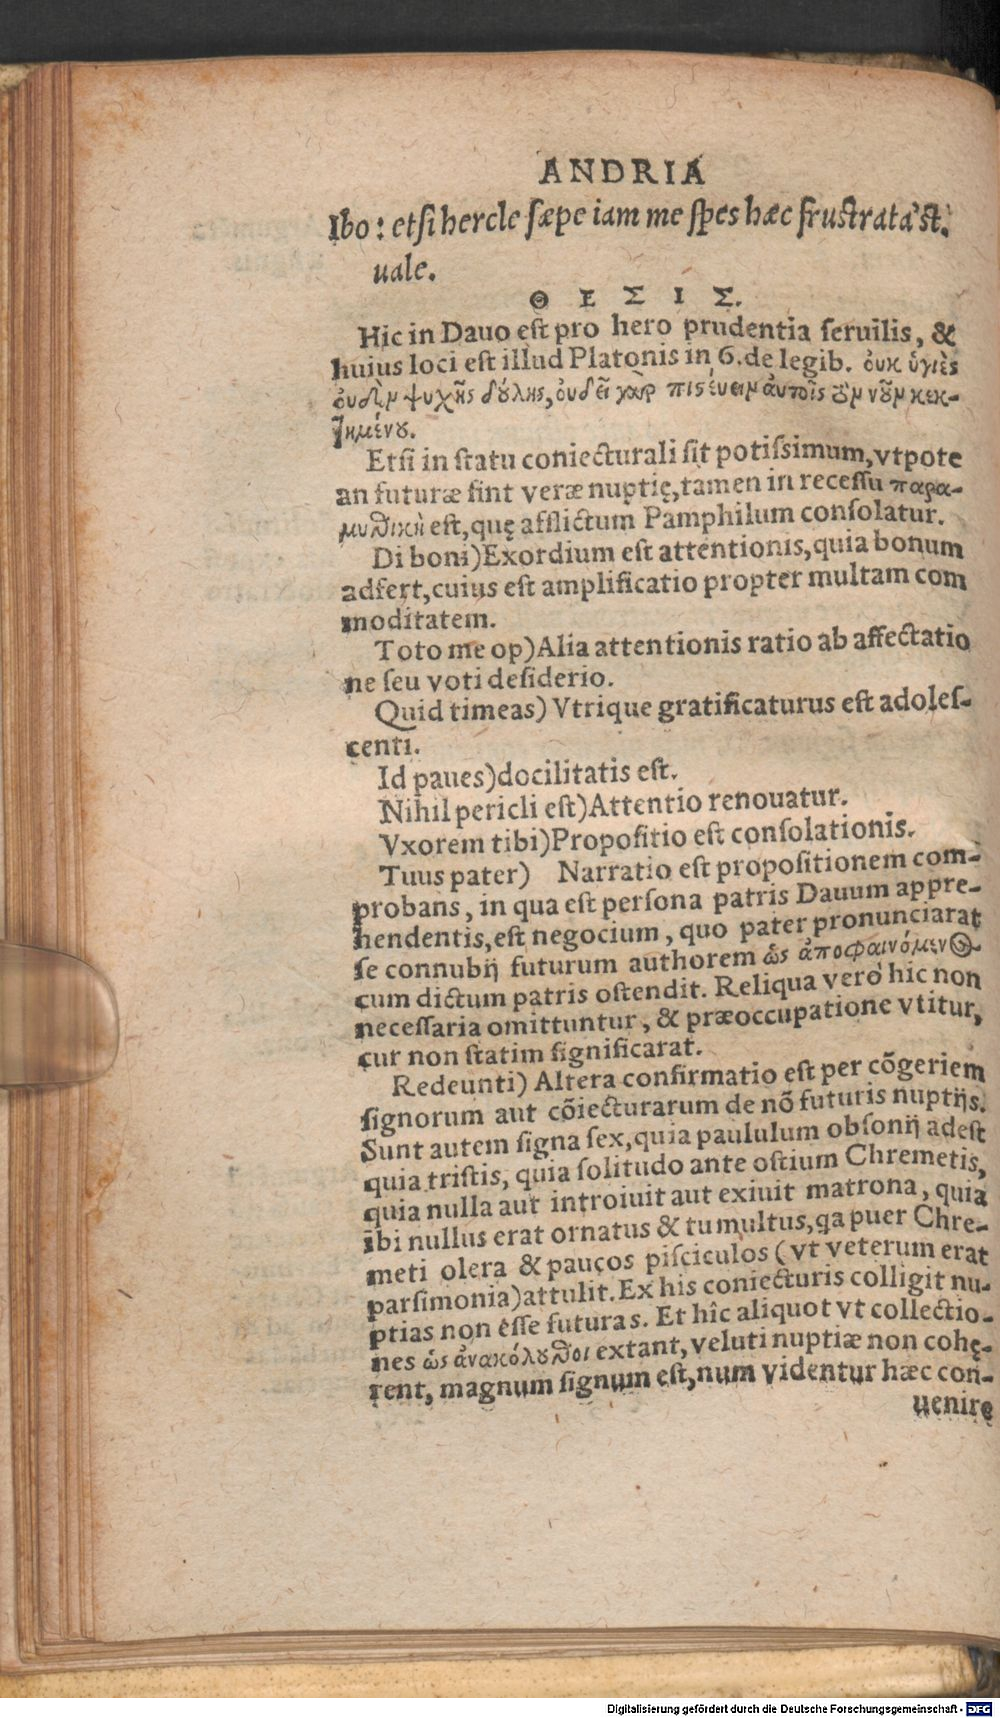 ANDRIA
Ibo: etsi hercle sæpe iam me spes hæc frustrata'st.
uale.
ΘΕΣΙΣ.
Hic in Dauo est pro hero prudentia seruilis, &
huius loci est illud Platonis in 6. de legib. οὐκ ὑγιὲς
οὐδὲν ψυχῆς δούλης, οὐδεῖ γὰρ πιστεύειν αὐτοῖς τὸν νοῦν κεκ-
τημένου.
Etsi in statu coniecturali sit potissimum, vtpote
an futuræ sint veræ nuptię, tamen in recessu παρα-
μυθικὴ est, quę afflictum Pamphilum consolatur.
Di boni) Exordium est attentionis, quia bonum
adfert, cuius est amplificatio propter multam com
moditatem.
Toto me op) Alia attentionis ratio ab affectatio
ne seu voti desiderio.
Quid timeas) Vtrique gratificaturus est adoles-
centi.
Id paues) docilitatis est.
Nihil pericli est) Attentio renouatur.
Vxorem tibi) Propositio est consolationis.
Tuus pater) Narratio est propositionem com-
probans, in qua est persona patris Dauum appre-
hendentis, est negocium, quo pater pronunciarat
se connubij futurum authorem ὡς ἀποφαινόμενος
cum dictum patris ostendit. Reliqua verò hic non
necessaria omittuntur, & præoccupatione vtitur,
cur non statim significarat.
Redeunti) Altera confirmatio est per cõgeriem
signorum aut cõiecturarum de nõ futuris nuptijs.
Sunt autem signa sex, quia paululum obsonij adest
quia tristis, quia solitudo ante ostium Chremetis,
quia nulla aut introiuit aut exiuit matrona, quia
ibi nullus erat ornatus & tumultus, qa puer Chre-
meti olera & paucos pisciculos (vt veterum erat
parsimonia) attulit. Ex his coniecturis colligit nu-
ptias non esse futuras. Et hîc aliquot vt collectio-
nes ὡς ἀνακόλουθοι extant, veluti nuptiæ non cohę-
rent, magnum signum est, num videntur hæc con-
uenire
Digitalisierung gefördert durch die Deutsche Forschungsgemeinschaft - DFG